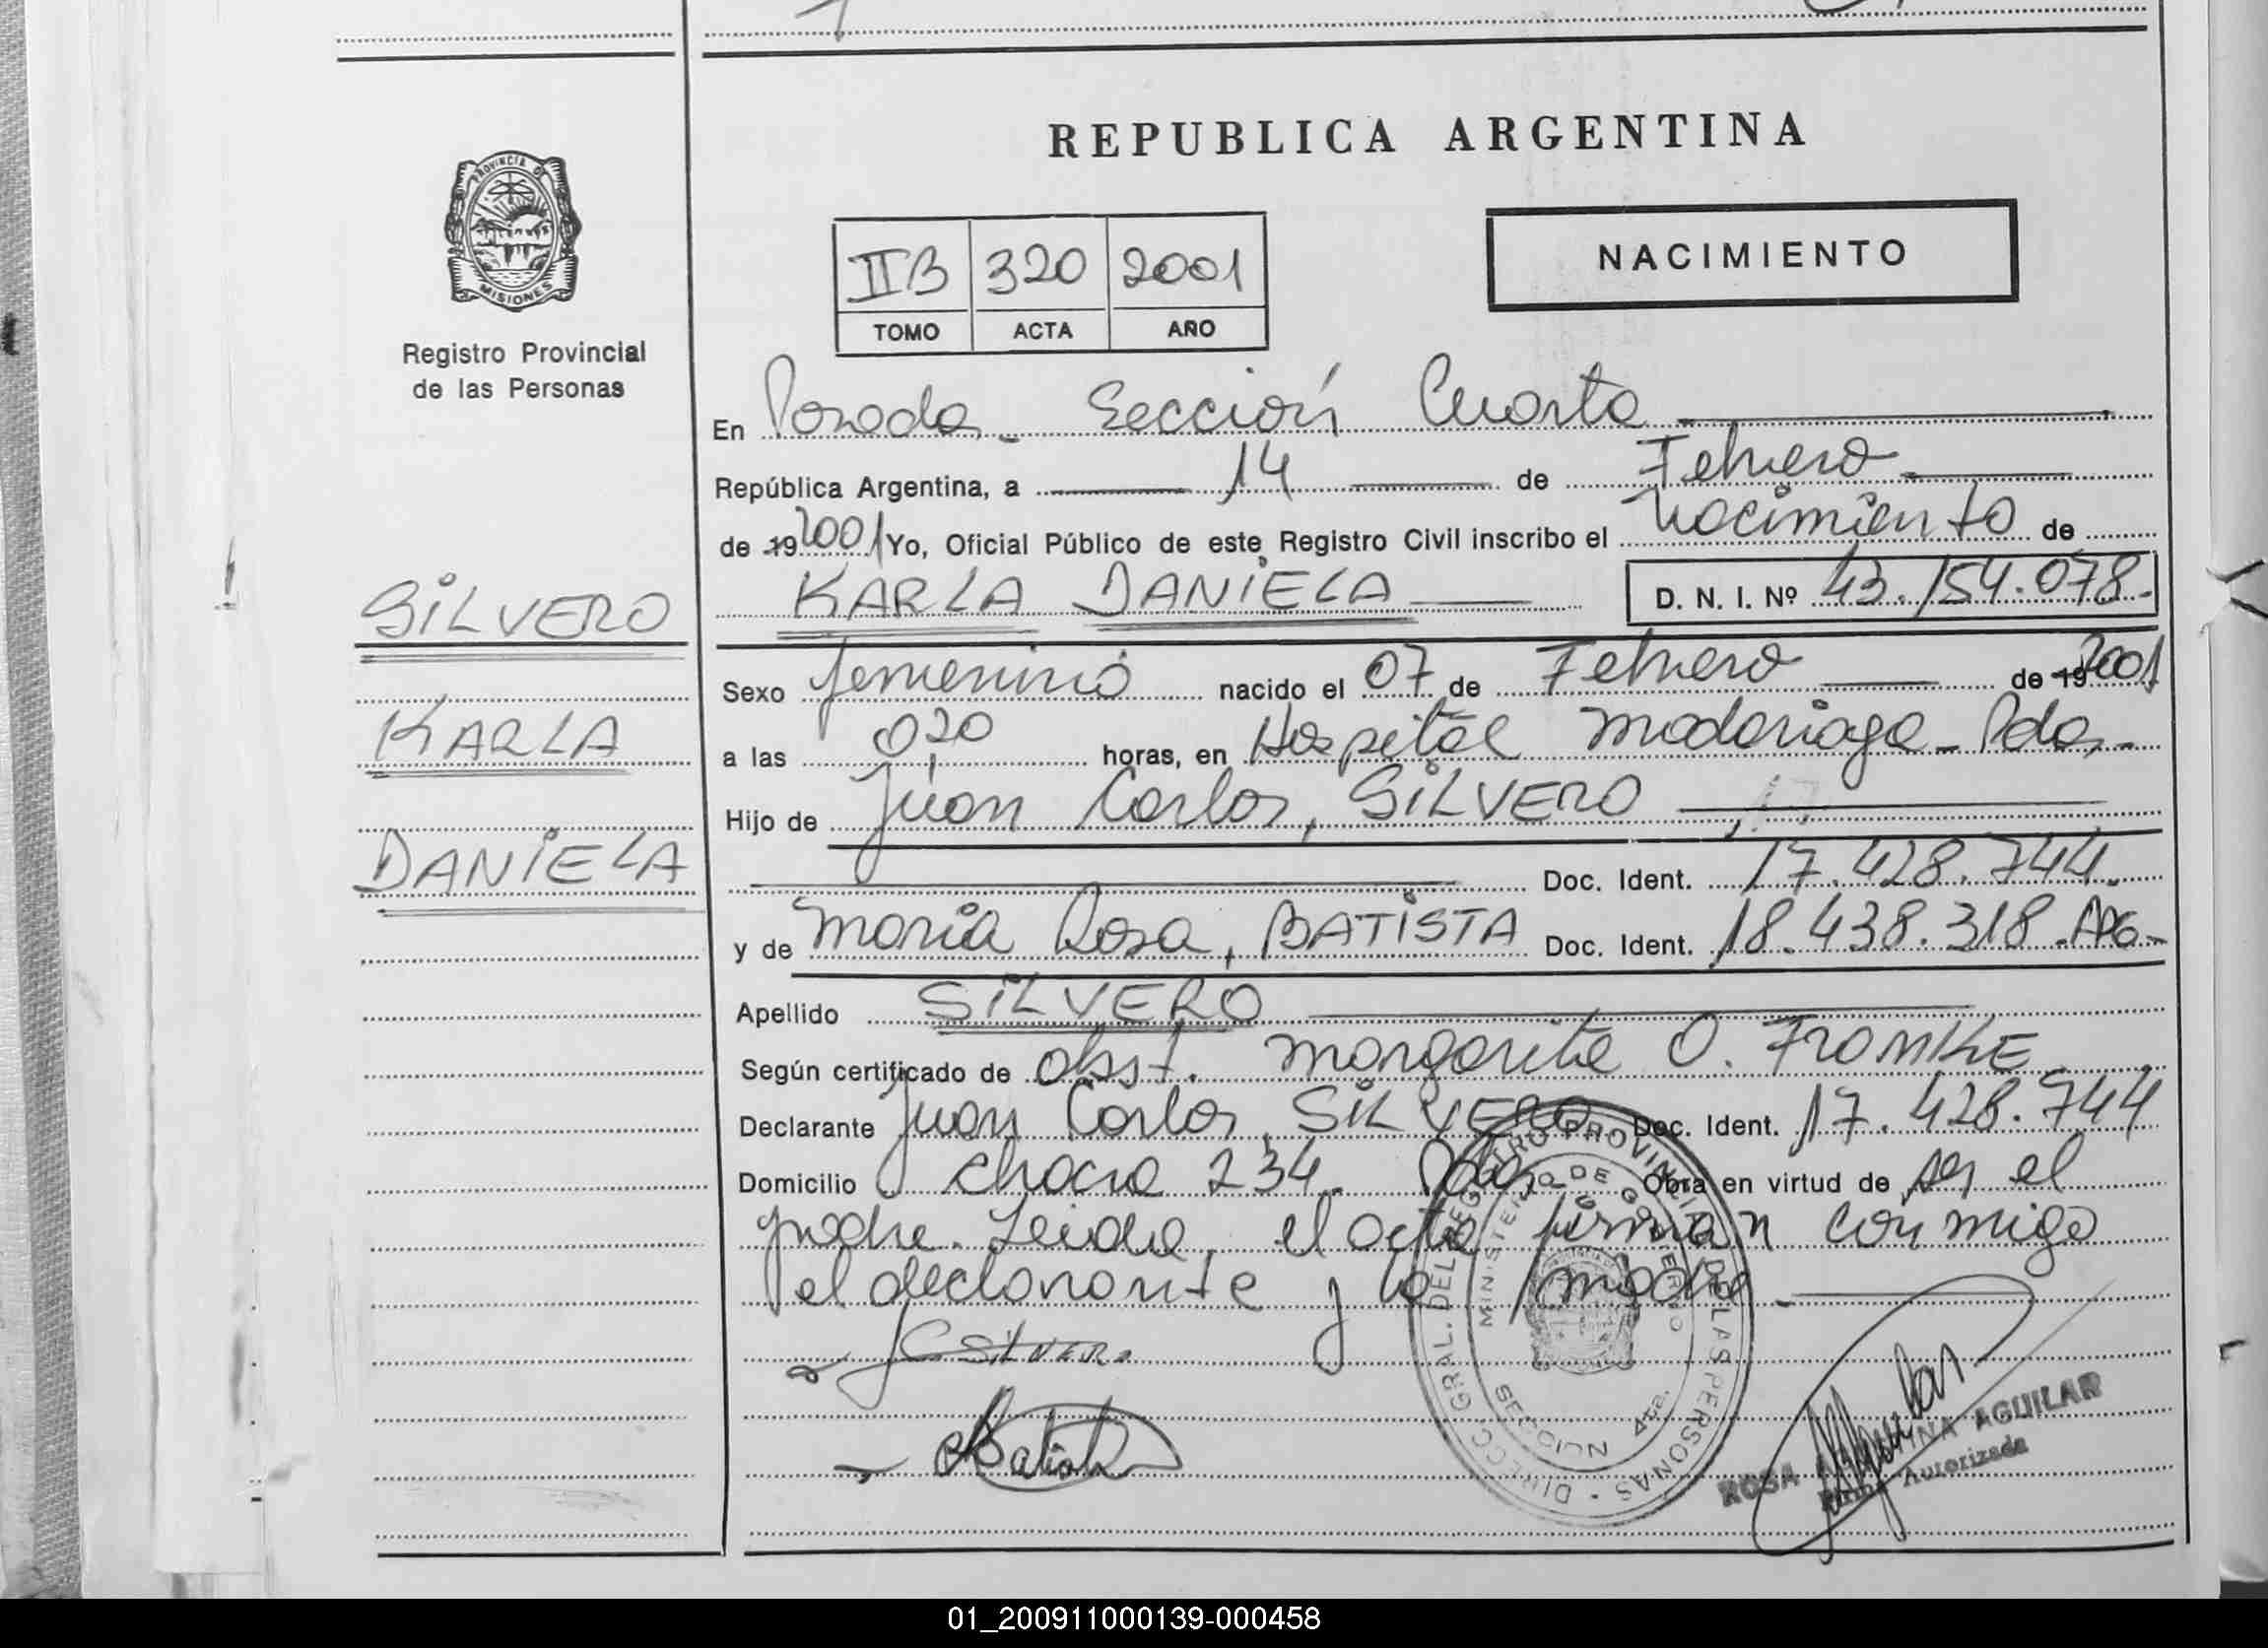 REPUBLICA ARGENTINA
PROVINCIA DE
MISIONES
Registro Provincial
de las Personas
NACIMIENTO
IIB 320 2001
TOMO ACTA AÑO
En Posadas Sección Cuarta
República Argentina, a 14 de Febrero
de 19 2001 Yo, Oficial Público de este Registro Civil inscribo el Nacimiento de
KARLA DANIELA D. N. I. Nº 43.154.078.-
SILVERO
KARLA
DANIELA
Sexo femenino nacido el 07 de Febrero de 19 2001
a las 020 horas, en Hospital Madariaga - Pdas.-
Hijo de Juan Carlos, SILVERO
Doc. Ident. 17.428.744.-
y de María Rosa, BATISTA Doc. Ident. 18.438.318.
Apellido SILVERO
Según certificado de obst. Margarita O. FROMKE
Declarante Juan Carlos, SILVERO Doc. Ident. 17.428.744
Domicilio chacra 234. Pdas.- Obra en virtud de ser el
padre. Leída el acta firman conmigo
el declarante y la madre.-
JC SILVERO
Batista
DIRECC. GRAL. DEL REGISTRO PROVINCIAL DE LAS PERSONAS
MINISTERIO DE GOBIERNO
SECCION 4ta.
Aguilar
ROSA AGUILAR
Firma Autorizada
01_200911000139-000458